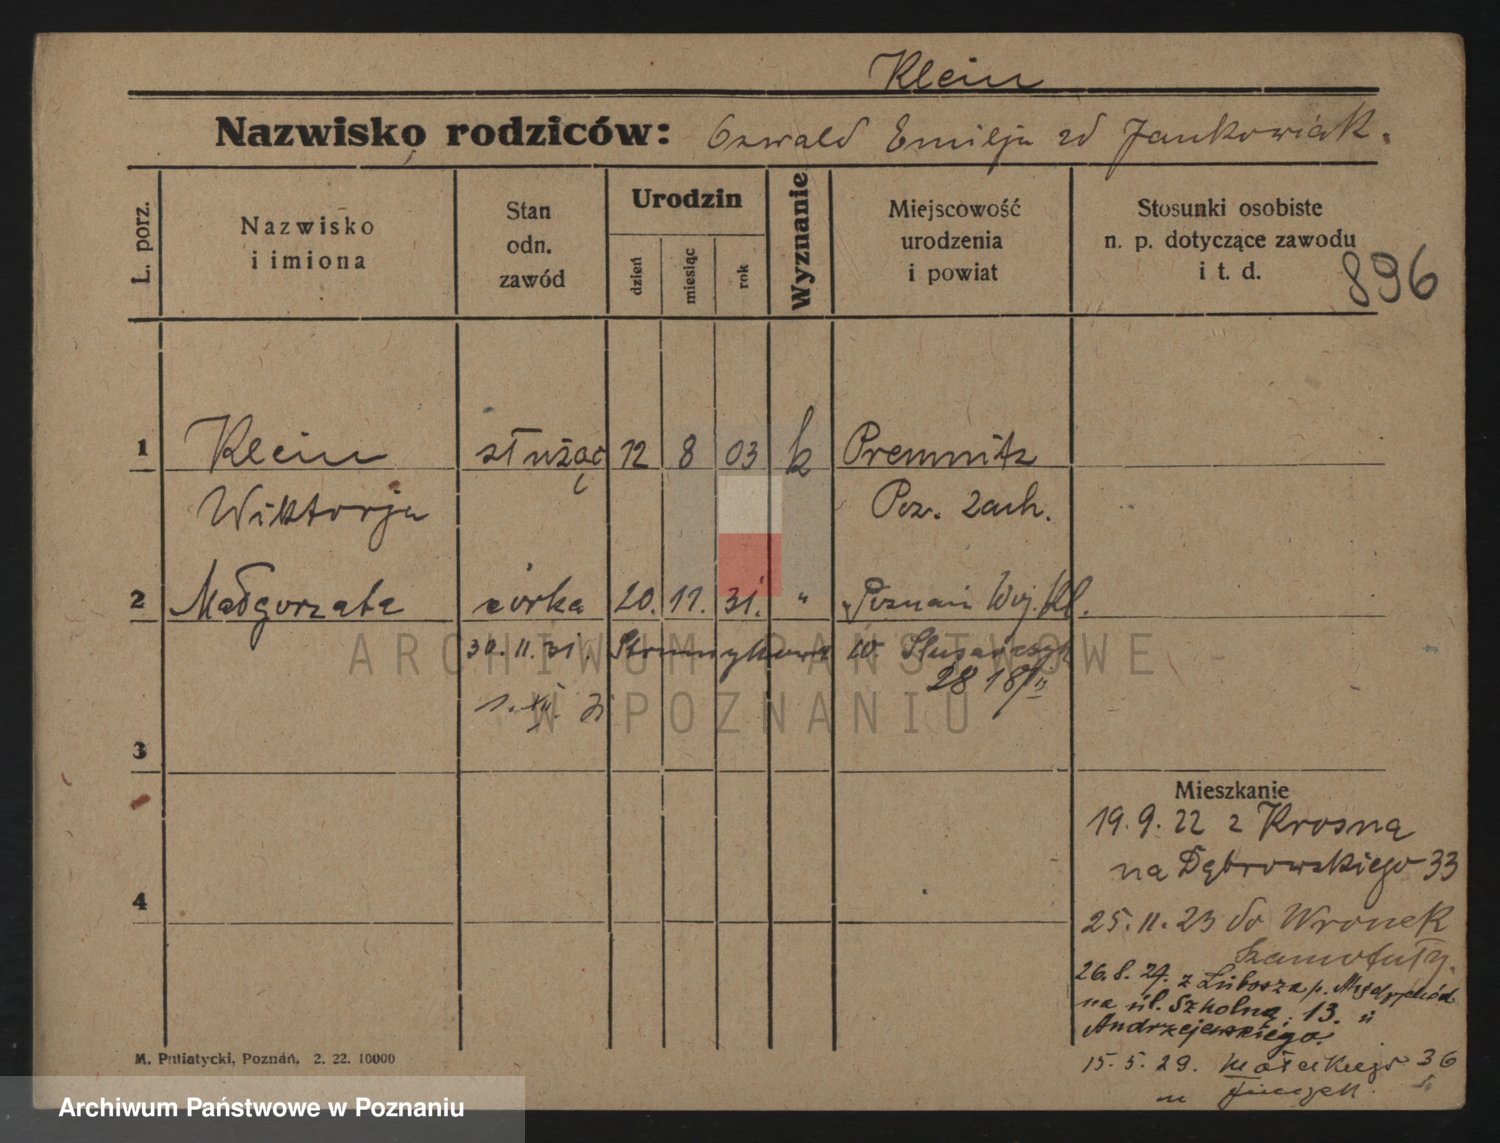 Klein
Nazwisko rodziców: Oswald Emilja zd Jankowiak.
L. porz.
Nazwisko
i imiona
Stan
odn.
zawód
Urodzin
dzień
miesiąc
rok
Wyznanie
Miejscowość
urodzenia
i powiat
Stosunki osobiste
n. p. dotyczące zawodu
i t. d.
896
1 Klein służąc 12 8 03 k Premnitz
Wiktorja Poz. zach.
2 Małgorzata córka 20. 11. 31. " Poznań Woj.
30. 11. 31. w.
28 18/
1. XII. 31
3
4
Mieszkanie
19. 9. 22 z Krosna
na Dąbrowskiego 33
25. 11. 23 do Wronek
Szamotuły.
26. 8. 27. z Lubosza p. Międzychód
na ul. Szkolną. 13. u
Andrzejewskiego.
15. 5. 29. Małeckiego 36
u
M. Putiatycki, Poznań. 2. 22. 10000
ARCHIWUM PAŃSTWOWE
W POZNANIU
Archiwum Państwowe w Poznaniu